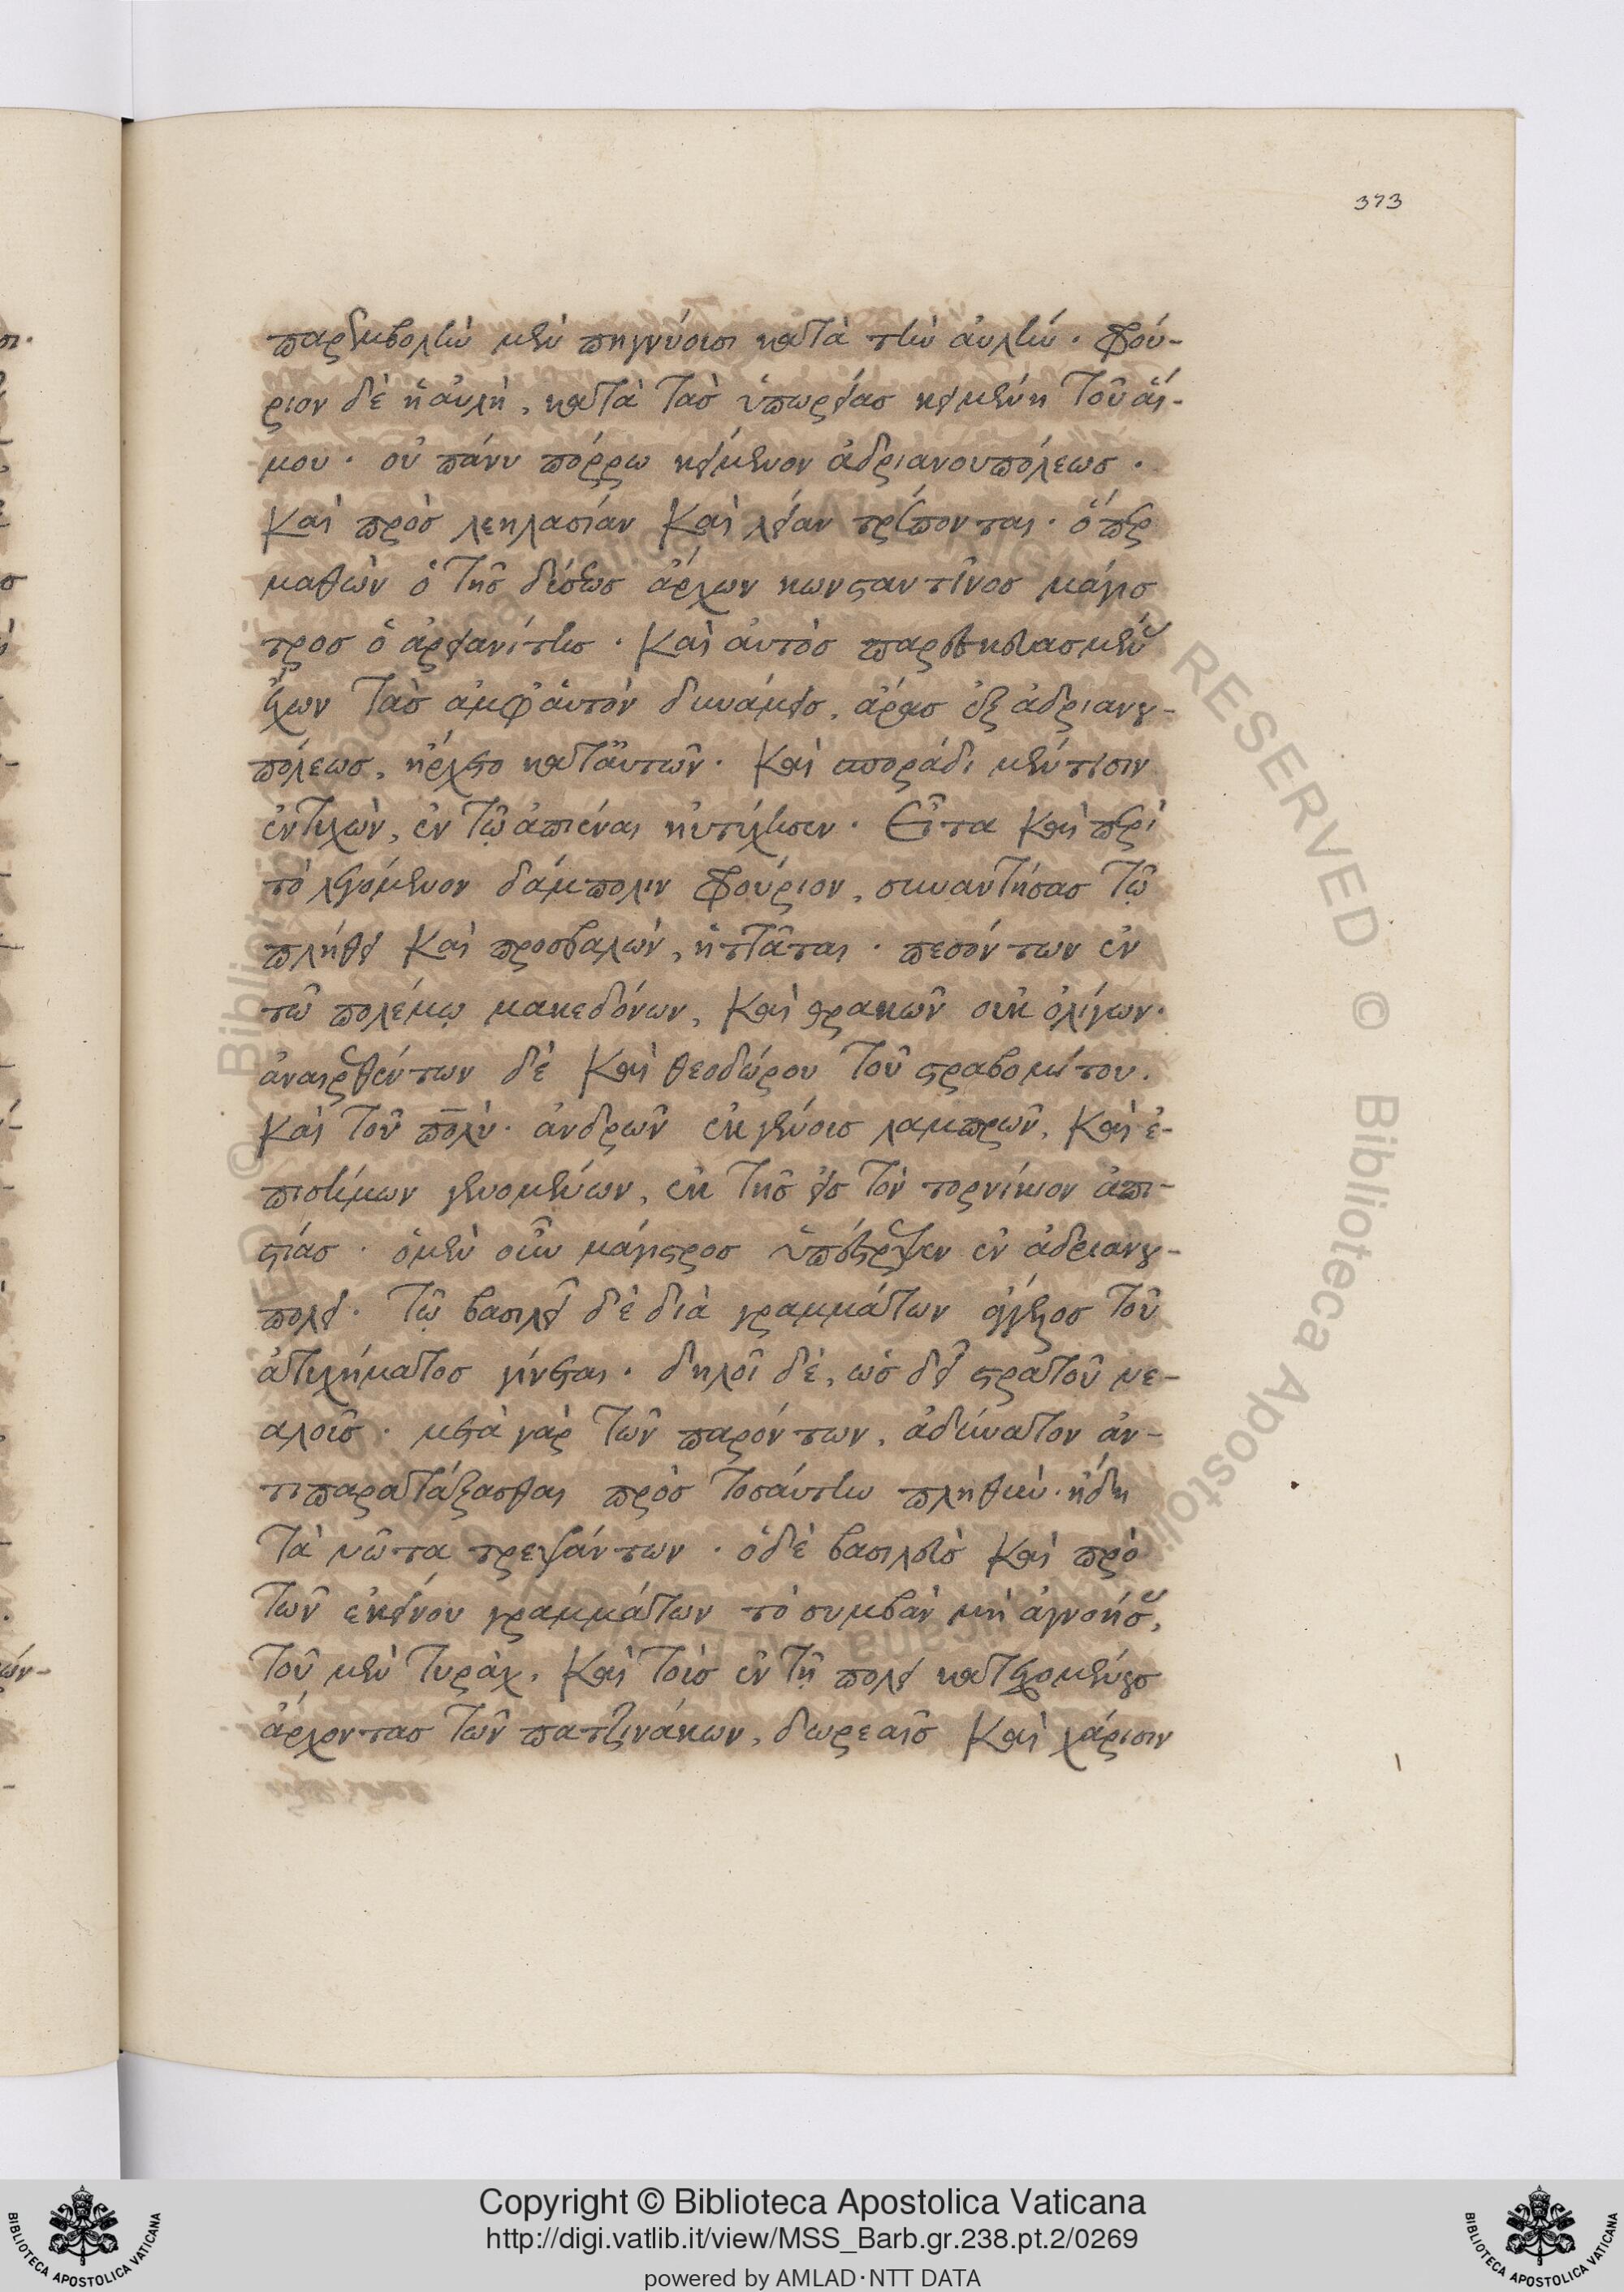 373
παρεμβολὴν μὲν πηγνύουσι κατὰ τὴν αὐλήν. φρού-
ριον δὲ ἡ αὐλὴ, κατὰ τὰς ὑπωρείας κειμένη τοῦ αἵ-
μου. οὐ πάνυ πόρρω κείμενον ἀδριανουπόλεως.
καὶ πρὸς λεηλασίαν καὶ λείαν τρέπονται. ὅπερ
μαθὼν ὁ τῆς δύσεως ἄρχων κωνσταντῖνος μάγισ
τρος ὁ ἀρειανίτης. καὶ αὐτὸς παρεσκευασμένας
ἔχων τὰς ἀμφ' αὐτὸν δυνάμεις, ἄρας ἐξ ἀδριανου-
πόλεως, ἤρχετο κατ' αὐτῶν. καὶ σποράδι μέν τισιν
ἐντυχὼν, ἐν τῷ ἀπιέναι ηὐτύχησεν. εἶτα καὶ περὶ
τὸ λεγόμενον δάμπολιν φρούριον, συναντήσας τῷ
πλήθει καὶ προσβαλὼν, ἡττᾶται. πεσόντων ἐν
τῷ πολέμῳ μακεδόνων, καὶ θρακῶν οὐκ ὀλίγων.
ἀναιρεθέντων δὲ καὶ θεοδώρου τοῦ στραβομύτου.
καὶ τοῦ πολύ. ἀνδρῶν ἐκ γένους λαμπρῶν, καὶ ἐ-
πισήμων γενομένων, ἐκ τῆς εἰς τὸν τορνίκιον ἀπι-
στίας. ὁ μὲν οὖν μάγιστρος ὑπέστρεψεν ἐν ἀδριανου-
πόλει. τῷ βασιλεῖ δὲ διὰ γραμμάτων ἄγγελος τοῦ
ἀτυχήματος γίνεται. δηλοῖ δὲ, ὡς δεῖ στρατοῦ νε-
αλοῦς. μετὰ γὰρ τῶν παρόντων, ἀδύνατον ἀν-
τιπαρατάξασθαι πρὸς τοσαύτην πληθὺν. ἤδη
τὰ νῶτα τρεψάντων. ὁ δὲ βασιλεὺς καὶ πρὸ
τῶν ἐκείνου γραμμάτων τὸ συμβὰν μὴ ἀγνοήσας,
τὸν μὲν τυρὰχ, καὶ τοὺς ἐν τῇ πόλει κατεχομένους
ἄρχοντας τῶν πατζινάκων, δωρεαῖς καὶ χάρισιν
Copyright © Biblioteca Apostolica Vaticana
http://digi.vatlib.it/view/MSS_Barb.gr.238.pt.2/0269
powered by AMLAD·NTT DATA
BIBLIOTECA APOSTOLICA VATICANA
BIBLIOTECA APOSTOLICA VATICANA